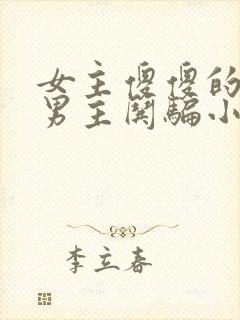 女主傻傻的
男主闲骗小
李立春